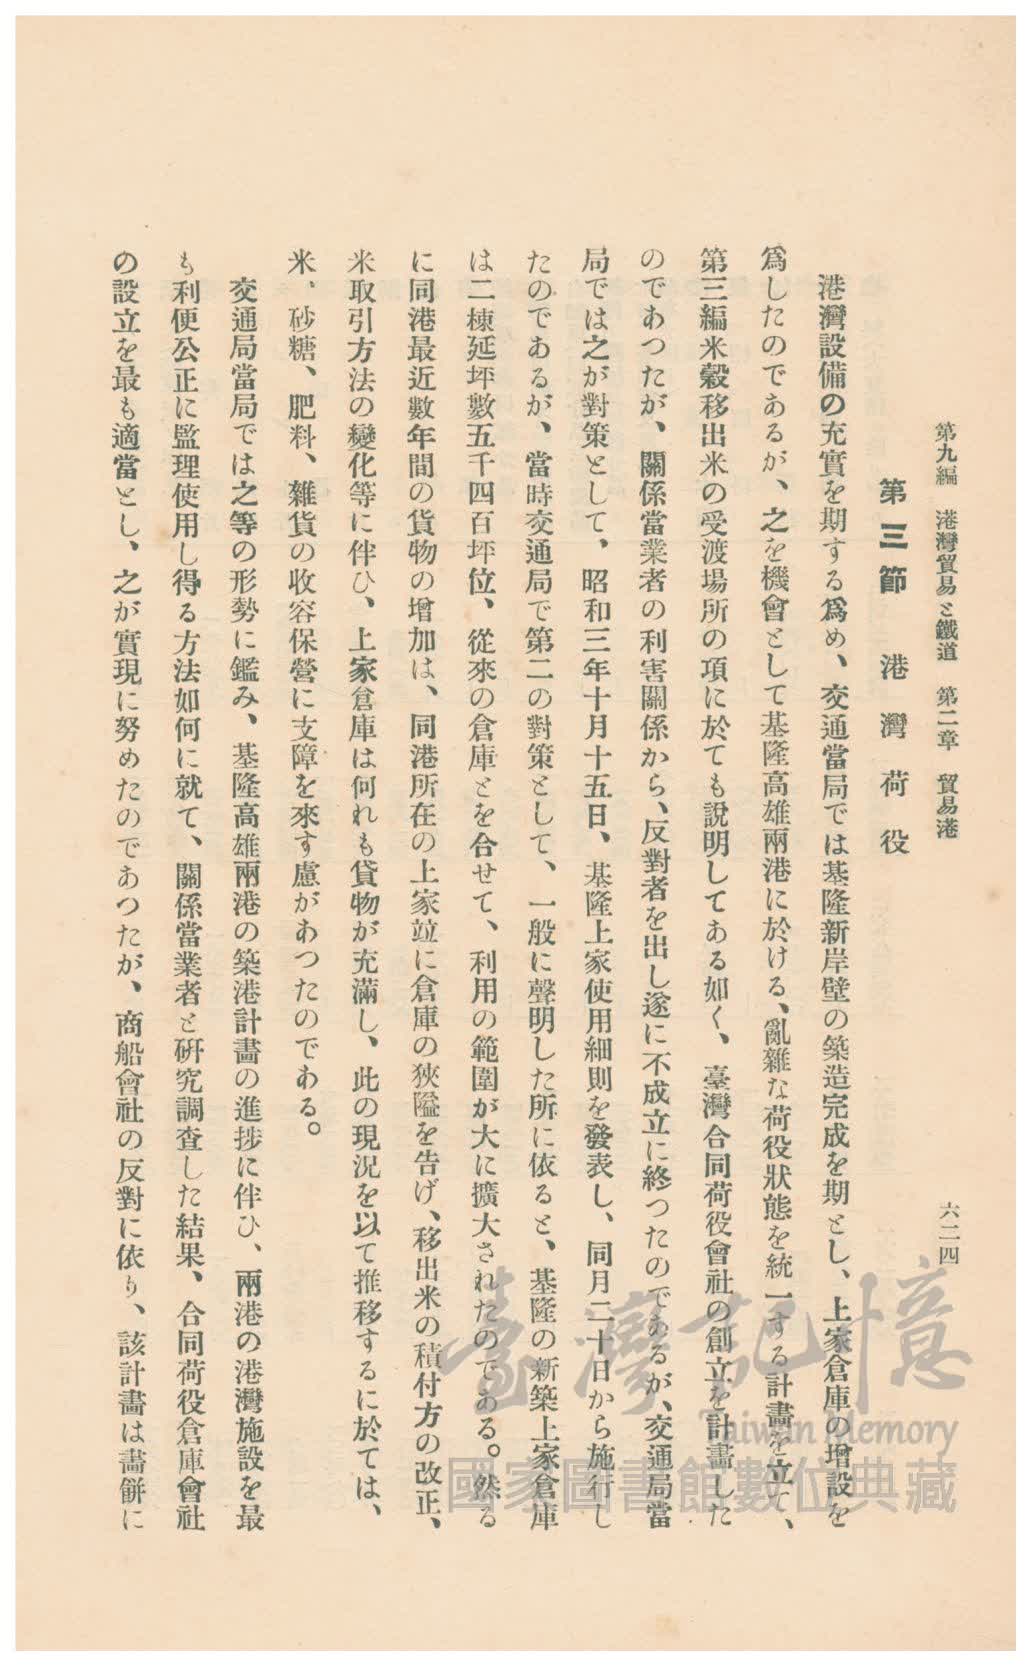 第九編　港灣貿易と鐵道　第二章　貿易港
六二四
第三節　港灣荷役
港灣設備の充實を期する爲め、交通當局では基隆新岸壁の築造完成を期とし、上家倉庫の增設を
爲したのであるが、之を機會として基隆高雄兩港に於ける、亂雜な荷役狀態を統一する計畫を立て、
第三編米穀移出米の受渡場所の項に於ても說明してある如く、臺灣合同荷役會社の創立を計畫した
のであつたが、關係當業者の利害關係から、反對者を出し遂に不成立に終つたのであるが、交通局當
局では之が對策として、昭和三年十月十五日、基隆上家使用細則を發表し、同月二十日から施行し
たのであるが、當時交通局で第二の對策として、一般に聲明した所に依ると、基隆の新築上家倉庫
は二棟延坪數五千四百坪位、從來の倉庫とを合せて、利用の範圍が大に擴大されたのである。然る
に同港最近數年間の貨物の增加は、同港所在の上家竝に倉庫の狹隘を告げ、移出米の積付方の改正、
米取引方法の變化等に伴ひ、上家倉庫は何れも貸物が充滿し、此の現況を以て推移するに於ては、
米、砂糖、肥料、雜貨の收容保營に支障を來す慮があつたのである。
交通局當局では之等の形勢に鑑み、基隆高雄兩港の築港計畫の進捗に伴ひ、兩港の港灣施設を最
も利便公正に監理使用し得る方法如何に就て、關係當業者と硏究調查した結果、合同荷役倉庫會社
の設立を最も適當とし、之が實現に努めたのであつたが、商船會社の反對に依り、該計畫は畵餠に
臺灣記憶
Taiwan Memory
國家圖書館數位典藏